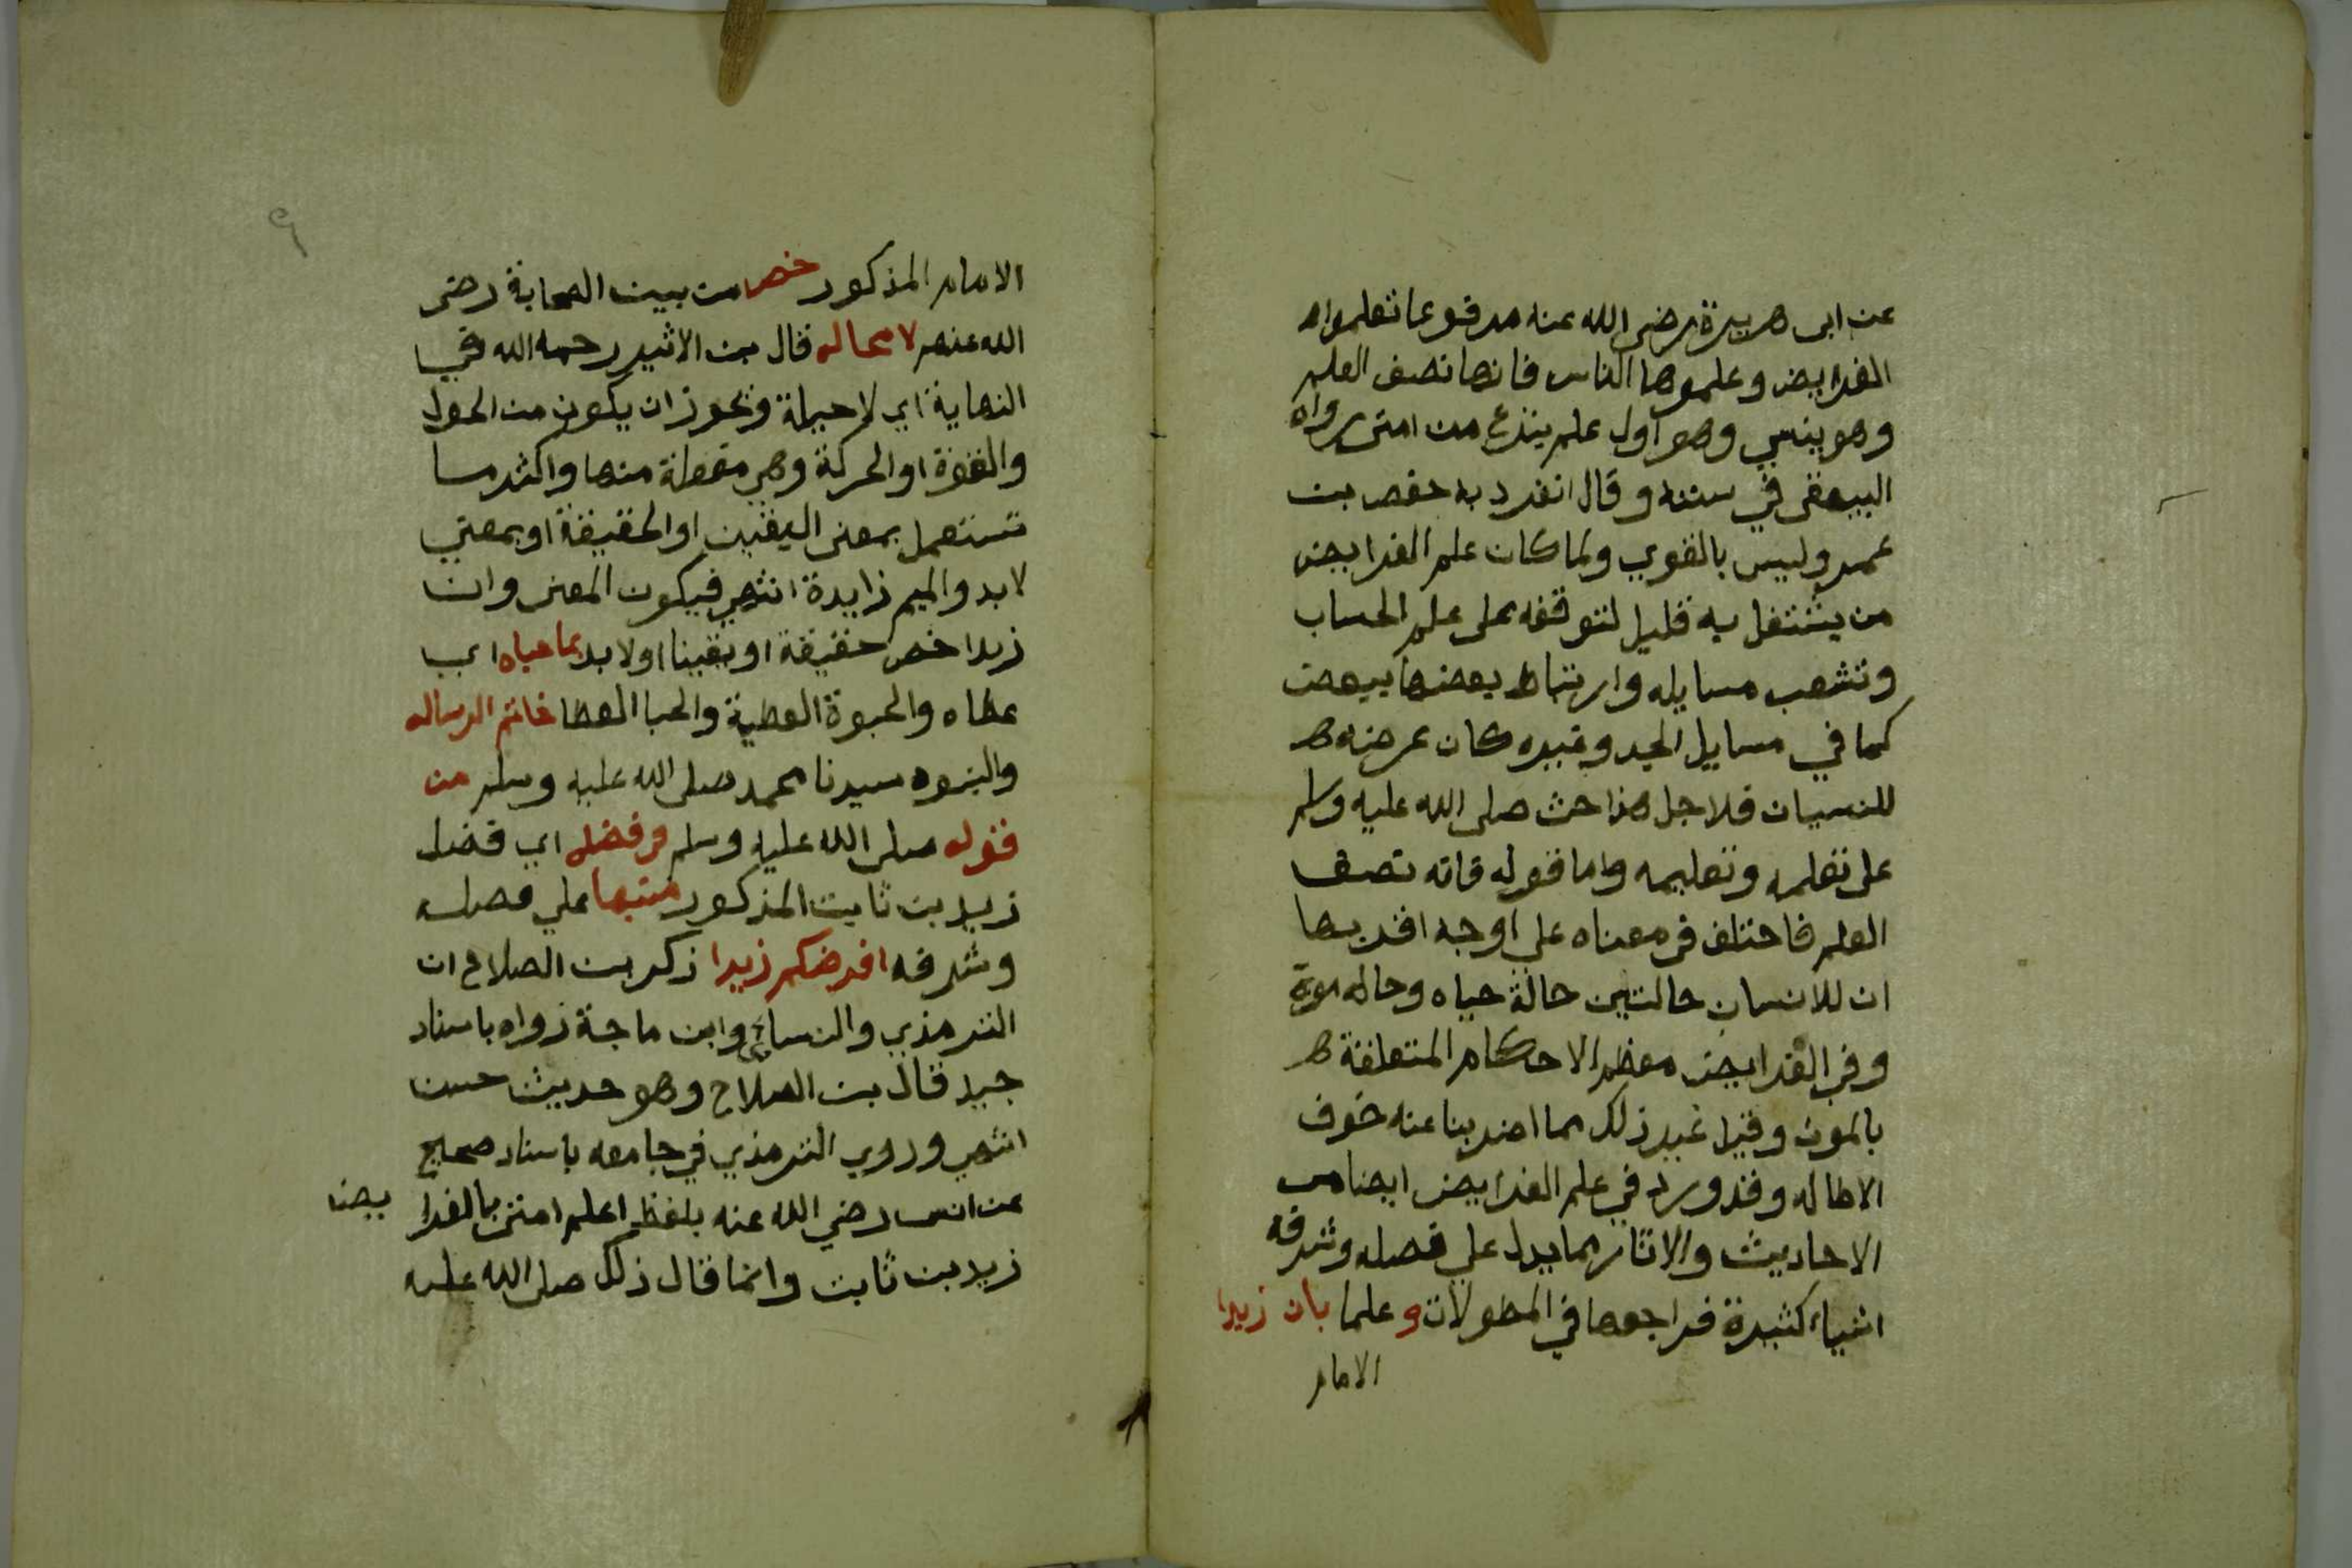 عن ابى هريرة رضى الله عنه مرفوعا تعلموا
الفرايض وعلموها الناس فانها نصف العلم
وهو ينسي وهو اول علم ينزع من امتى رواه
البيهقى في سننه وقال انفرد به حفص بن
عمر وليس بالقوي ولما كان علم الفرايض
من يشتغل به قليل لتوقفه على علم الحساب
وتشعب مسايله وارتباط بعضها ببعض
كما في مسايل الجد وغيره كان عرضه
للنسيان فلاجل هذا حث صلى الله عليه وسلم
على تعلمه وتعليمه واما قوله فانه نصف
العلم فاختلف في معناه علي اوجه اقربها
ان للانسان حالتين حالة حياه وحاله موت
وفي الفرايض معظم الاحكام المتعلقة
بالموت وقيل غير ذلك مما اضربنا عنه خوف
الاطاله وقد ورد في علم الفرايض ايضا من
الاحاديث والاثار مما يدل علي فضله وشرفه
اشياء كثيرة فراجعها في المطولات وعلما بان زيدا
الامام
٩
الامام المذكور خص من بين الصحابة رضى
الله عنهم لا محاله قال بن الاثير رحمه الله في
النهاية اي لا حيلة ويجوز ان يكون من الحول
والقوة او الحركة وهي مفعلة منها واكثر ما
تستعمل بمعنى اليقين او الحقيقة او بمعني
لابد والميم زايدة انتهي فيكون المعنى وان
زيدا خص حقيقة او يقينا او لابد بما حباه اي
عطاه والحبوة العطية والحبا العطا خاتم الرساله
والنبوه سيدنا محمد صلى الله عليه وسلم من
قوله صلى الله عليه وسلم في فضله اي فضل
زيد بن ثابت المذكور منبها علي فضله
وشرفه افرضكم زيدا ذكر بن الصلاح ان
الترمذي والنسائي وابن ماجة رواه باسناد
جيد قال بن الصلاح وهو حديث حسن
انتهي وروي الترمذي في جامعه باسناد صحيح
عن انس رضي الله عنه بلفظ اعلم امتى بالفرا يض
زيد بن ثابت وانما قال ذلك صلى الله عليه